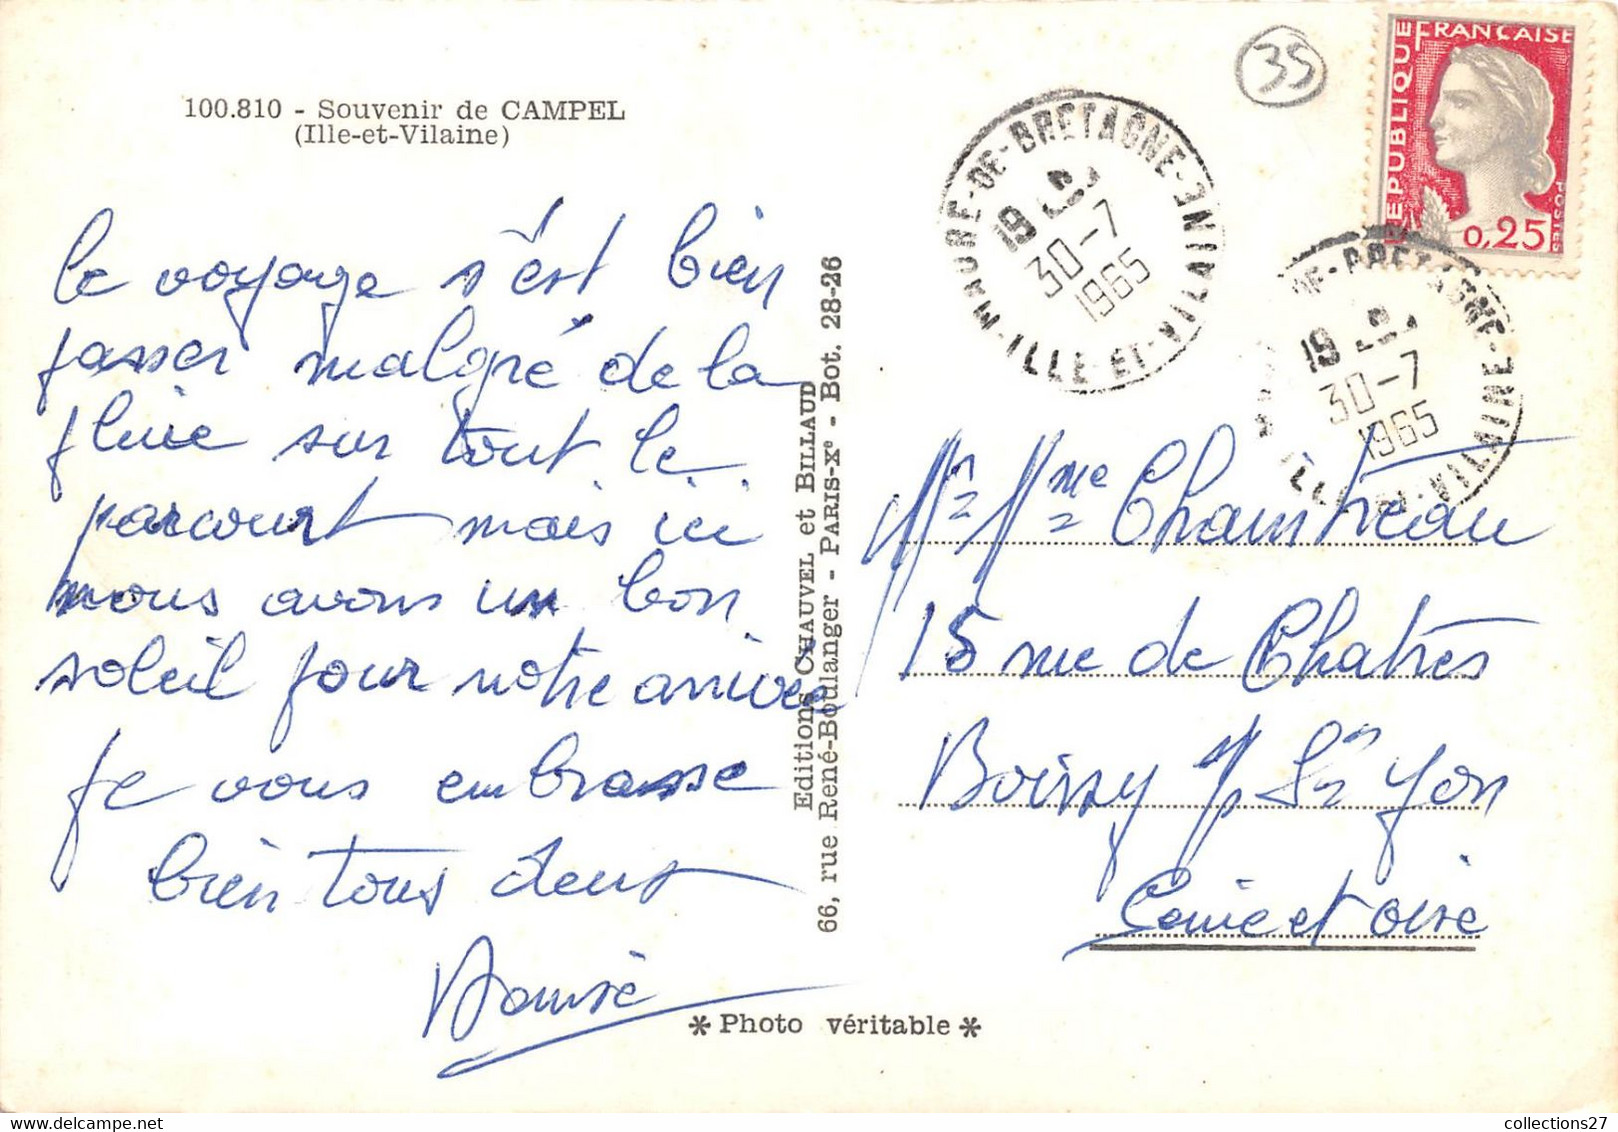 100.810 - Souvenir de CAMPEL
(Ille-et-Vilaine)
le voyage s'est bien
passer malgré de la
pluie sur tout le
parcourt mais ici
nous avons un bon
soleil pour notre arrivée
je vous embrasse
bien tous deux
Editions CHAUVEL et BILLAUD
66, rue René-Boulanger - PARIS-Xe - Bot. 28-26
* Photo véritable *
35
RÉPUBLIQUE FRANÇAISE
POSTES
0,25
MAURE-DE-BRETAGNE
ILLE-ET-VILAINE
19
30-7
1965
DE-BRETAGNE
ILLE-ET-VILAINE
19
30-7
1965
Mr Mme Chaintreau
15 rue de Chatres
Boissy s/s St Yon
Seine et oise
collections27